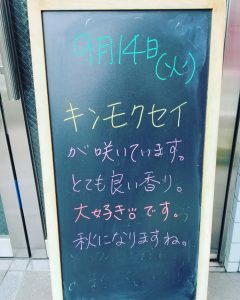 9月14日(火)
キンモクセイ
が咲いています。
とても良い香り。
大好き!!です。
秋になりますね。